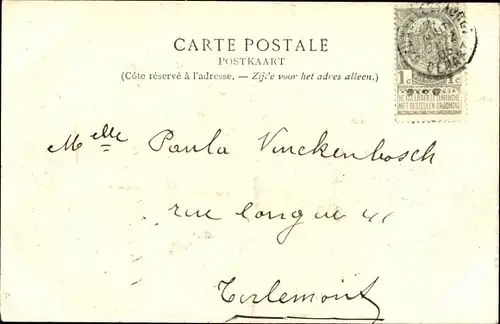 CARTE POSTALE
POSTKAART
(Côte réservé à l'adresse. — Zijde voor het adres alleen.)
1c 1c
NE PAS LIVRER LE DIMANCHE
NIET BESTELLEN OP ZONDAG
Melle Paula Vinckenbosch
rue longue 41
Tirlemont